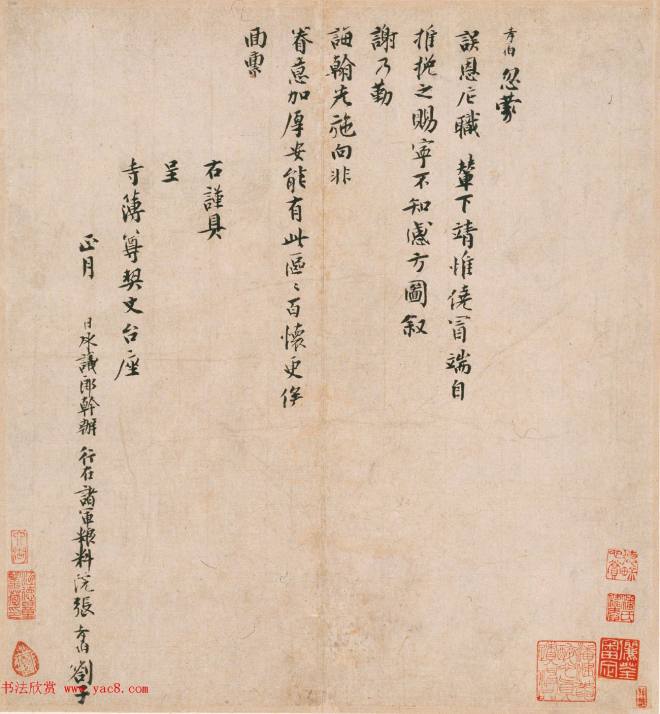 孝伯忽蒙
誤恩庀職 輦下靖惟僥冒端自
推挽之賜寧不知感方圖叙
謝乃勤
誨翰先施向非
眷意加厚安能有此區〻百懷更俟
面專
右謹具
呈
寺簿尊契丈台座
正月 日承議郎幹辦 行在諸軍糧料院張孝伯劄子
书法欣赏 www.yac8.com